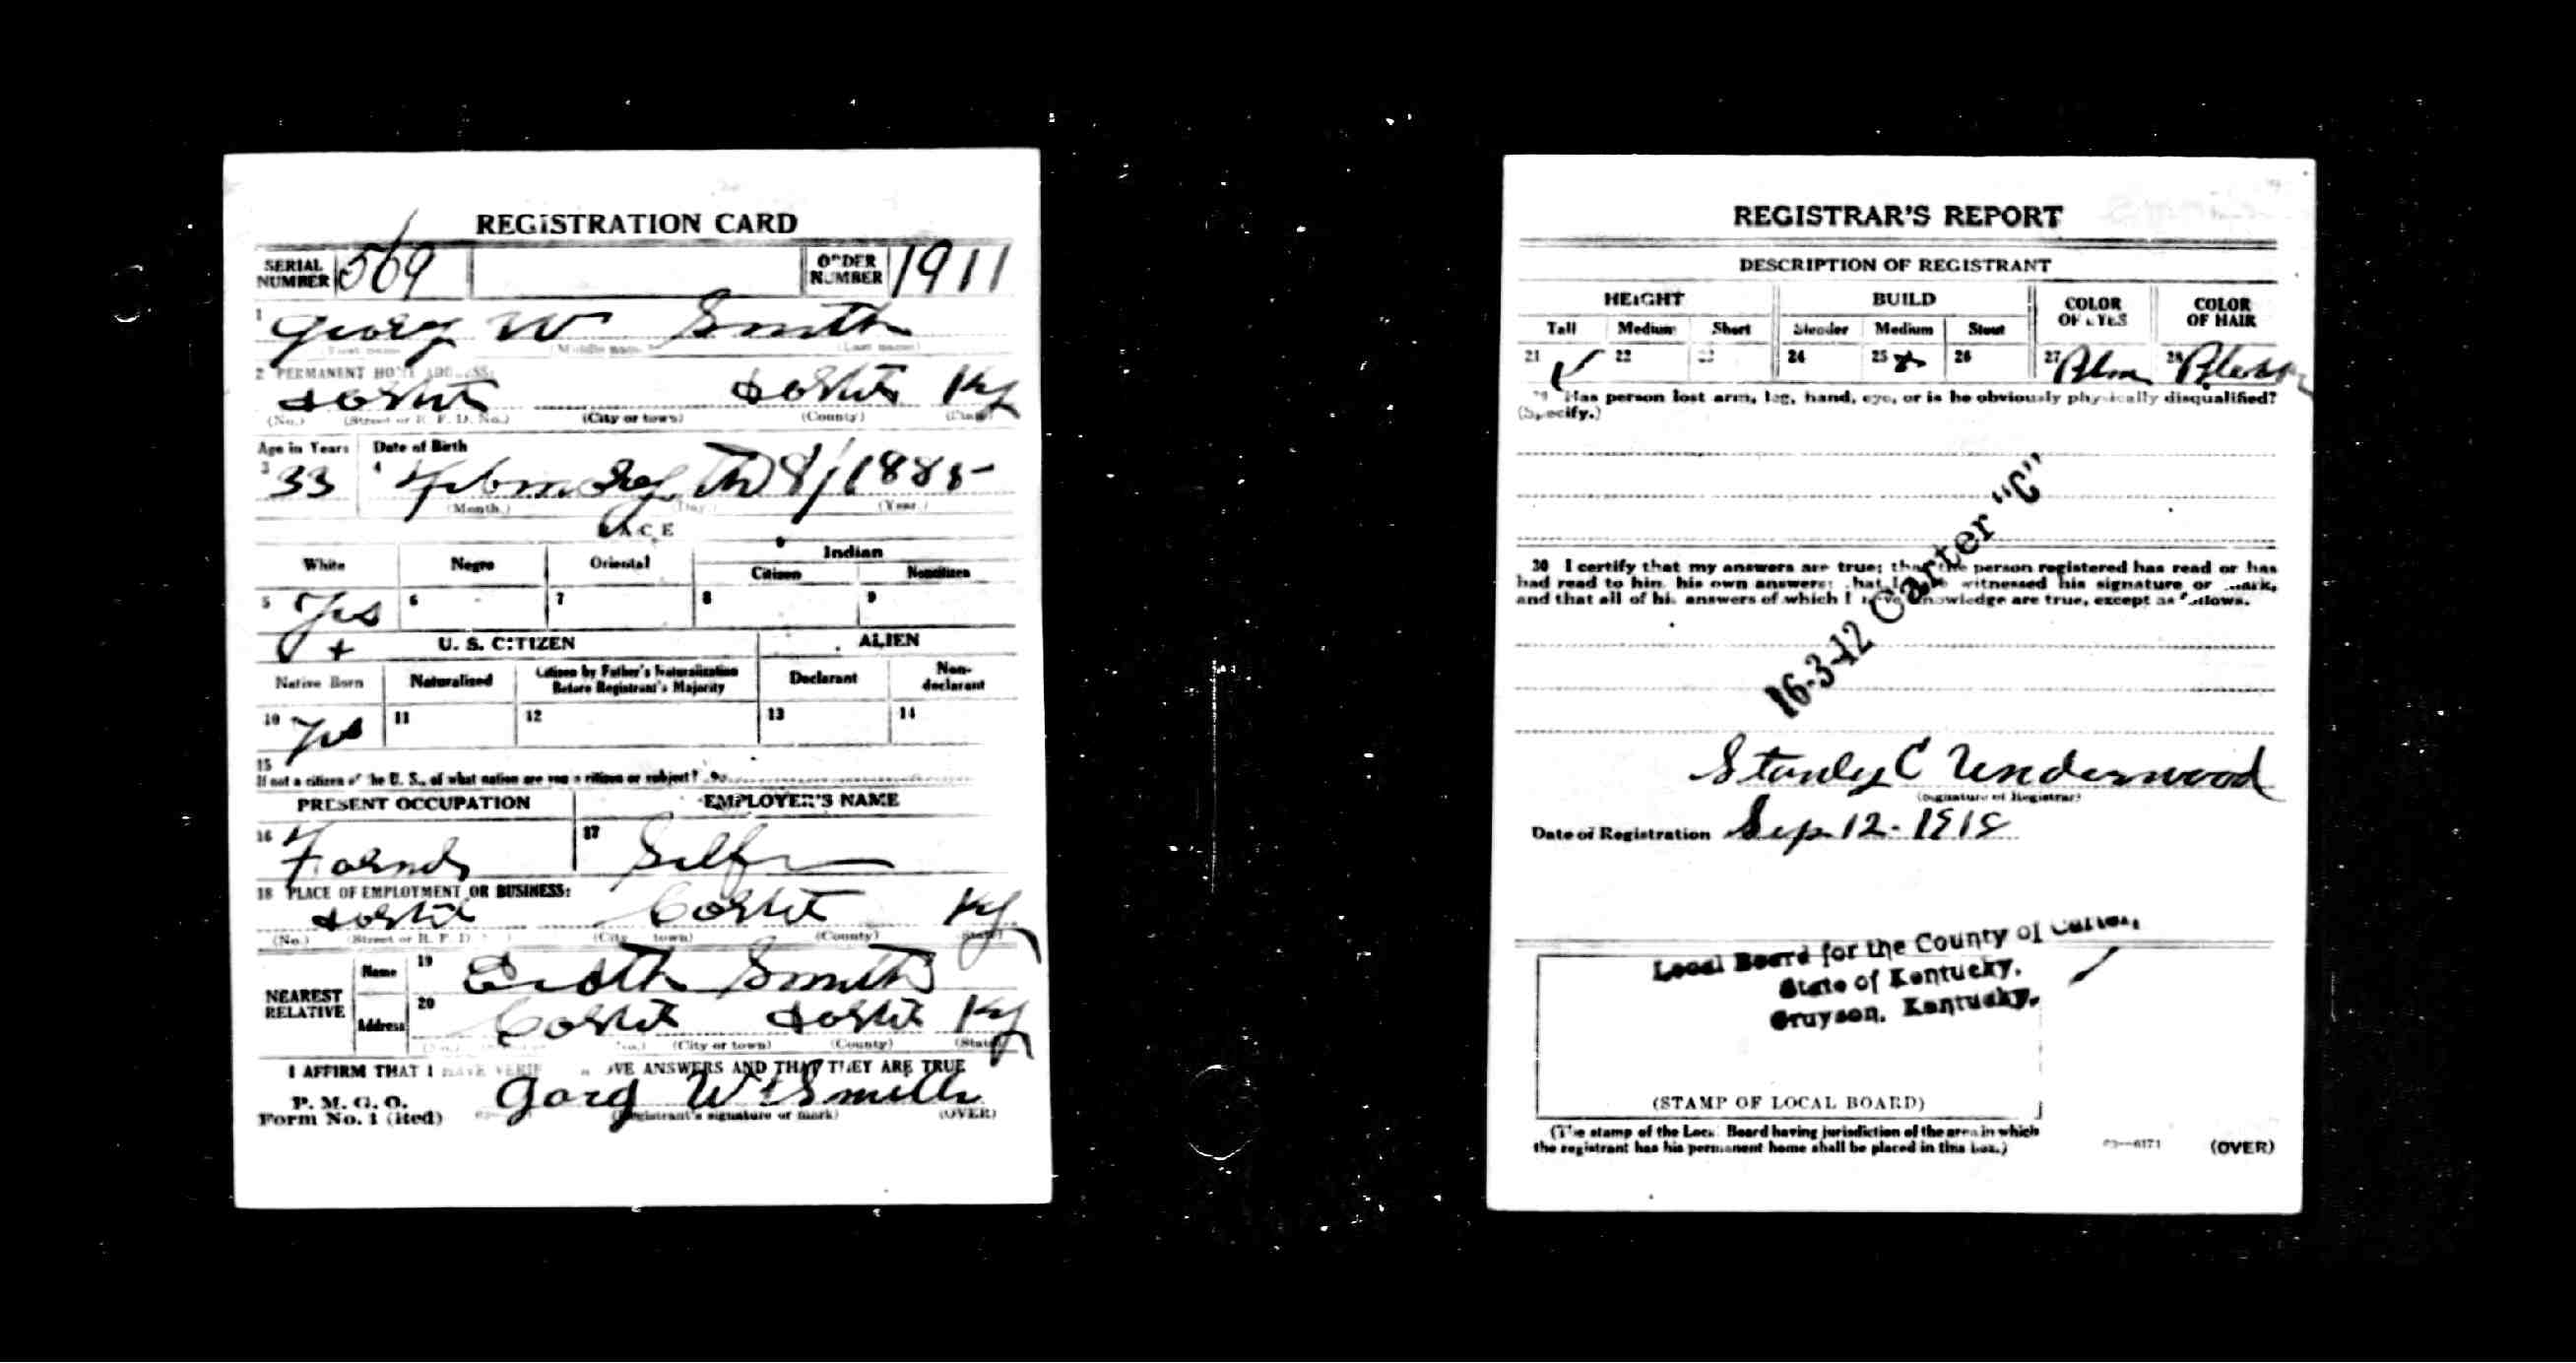 REGISTRATION CARD
SERIAL NUMBER 569 ORDER NUMBER 1911
1 Georg W Smith
(First name) (Middle name) (Last name)
2 PERMANENT HOME ADDRESS:
Ky
(No.) (Street or R. F. D. No.) (City or town) (County) (State)
Age in Years Date of Birth
3 33 4 8 / 1885
(Month.) (Day.) (Year.)
RACE
White Negro Oriental Indian
Citizen Noncitizen
5 Yes 6 7 8 9
U. S. CITIZEN ALIEN
Native Born Naturalized Citizen by Father's Naturalization Before Registrant's Majority Declarant Non-declarant
10 Yes 11 12 13 14
15
If not a citizen of the U. S., of what nation are you a citizen or subject?
PRESENT OCCUPATION EMPLOYER'S NAME
16 17 Self
18 PLACE OF EMPLOYMENT OR BUSINESS:
Ky
(No.) (Street or R. F. D. ) (City town) (County) (State)
NEAREST RELATIVE
Name 19 Smith
Address 20 Ky
(No.) (City or town) (County) (State)
I AFFIRM THAT I HAVE VERIF OVE ANSWERS AND THAT THEY ARE TRUE
P. M. G. O.
Form No. 1 (Red) Gorg W Smith
(Registrant's signature or mark) (OVER)
REGISTRAR'S REPORT
DESCRIPTION OF REGISTRANT
HEIGHT BUILD COLOR OF EYES COLOR OF HAIR
Tall Medium Short Slender Medium Stout
21 ✓ 22 23 24 25 26 27 28
29 Has person lost arm, leg, hand, eye, or is he obviously physically disqualified?
(Specify.)
30 I certify that my answers are true; that the person registered has read or has
had read to him his own answers; that I have witnessed his signature or mark,
and that all of his answers of which I have knowledge are true, except as follows.
16-3-12 Carter "C"
Stanley C Underwood
(Signature of Registrar)
Date of Registration Sep 12-1918
Local Board for the County of Carter,
State of Kentucky.
Grayson, Kentucky.
(STAMP OF LOCAL BOARD)
(The stamp of the Local Board having jurisdiction of the area in which
the registrant has his permanent home shall be placed in this box.)
03—6171 (OVER)